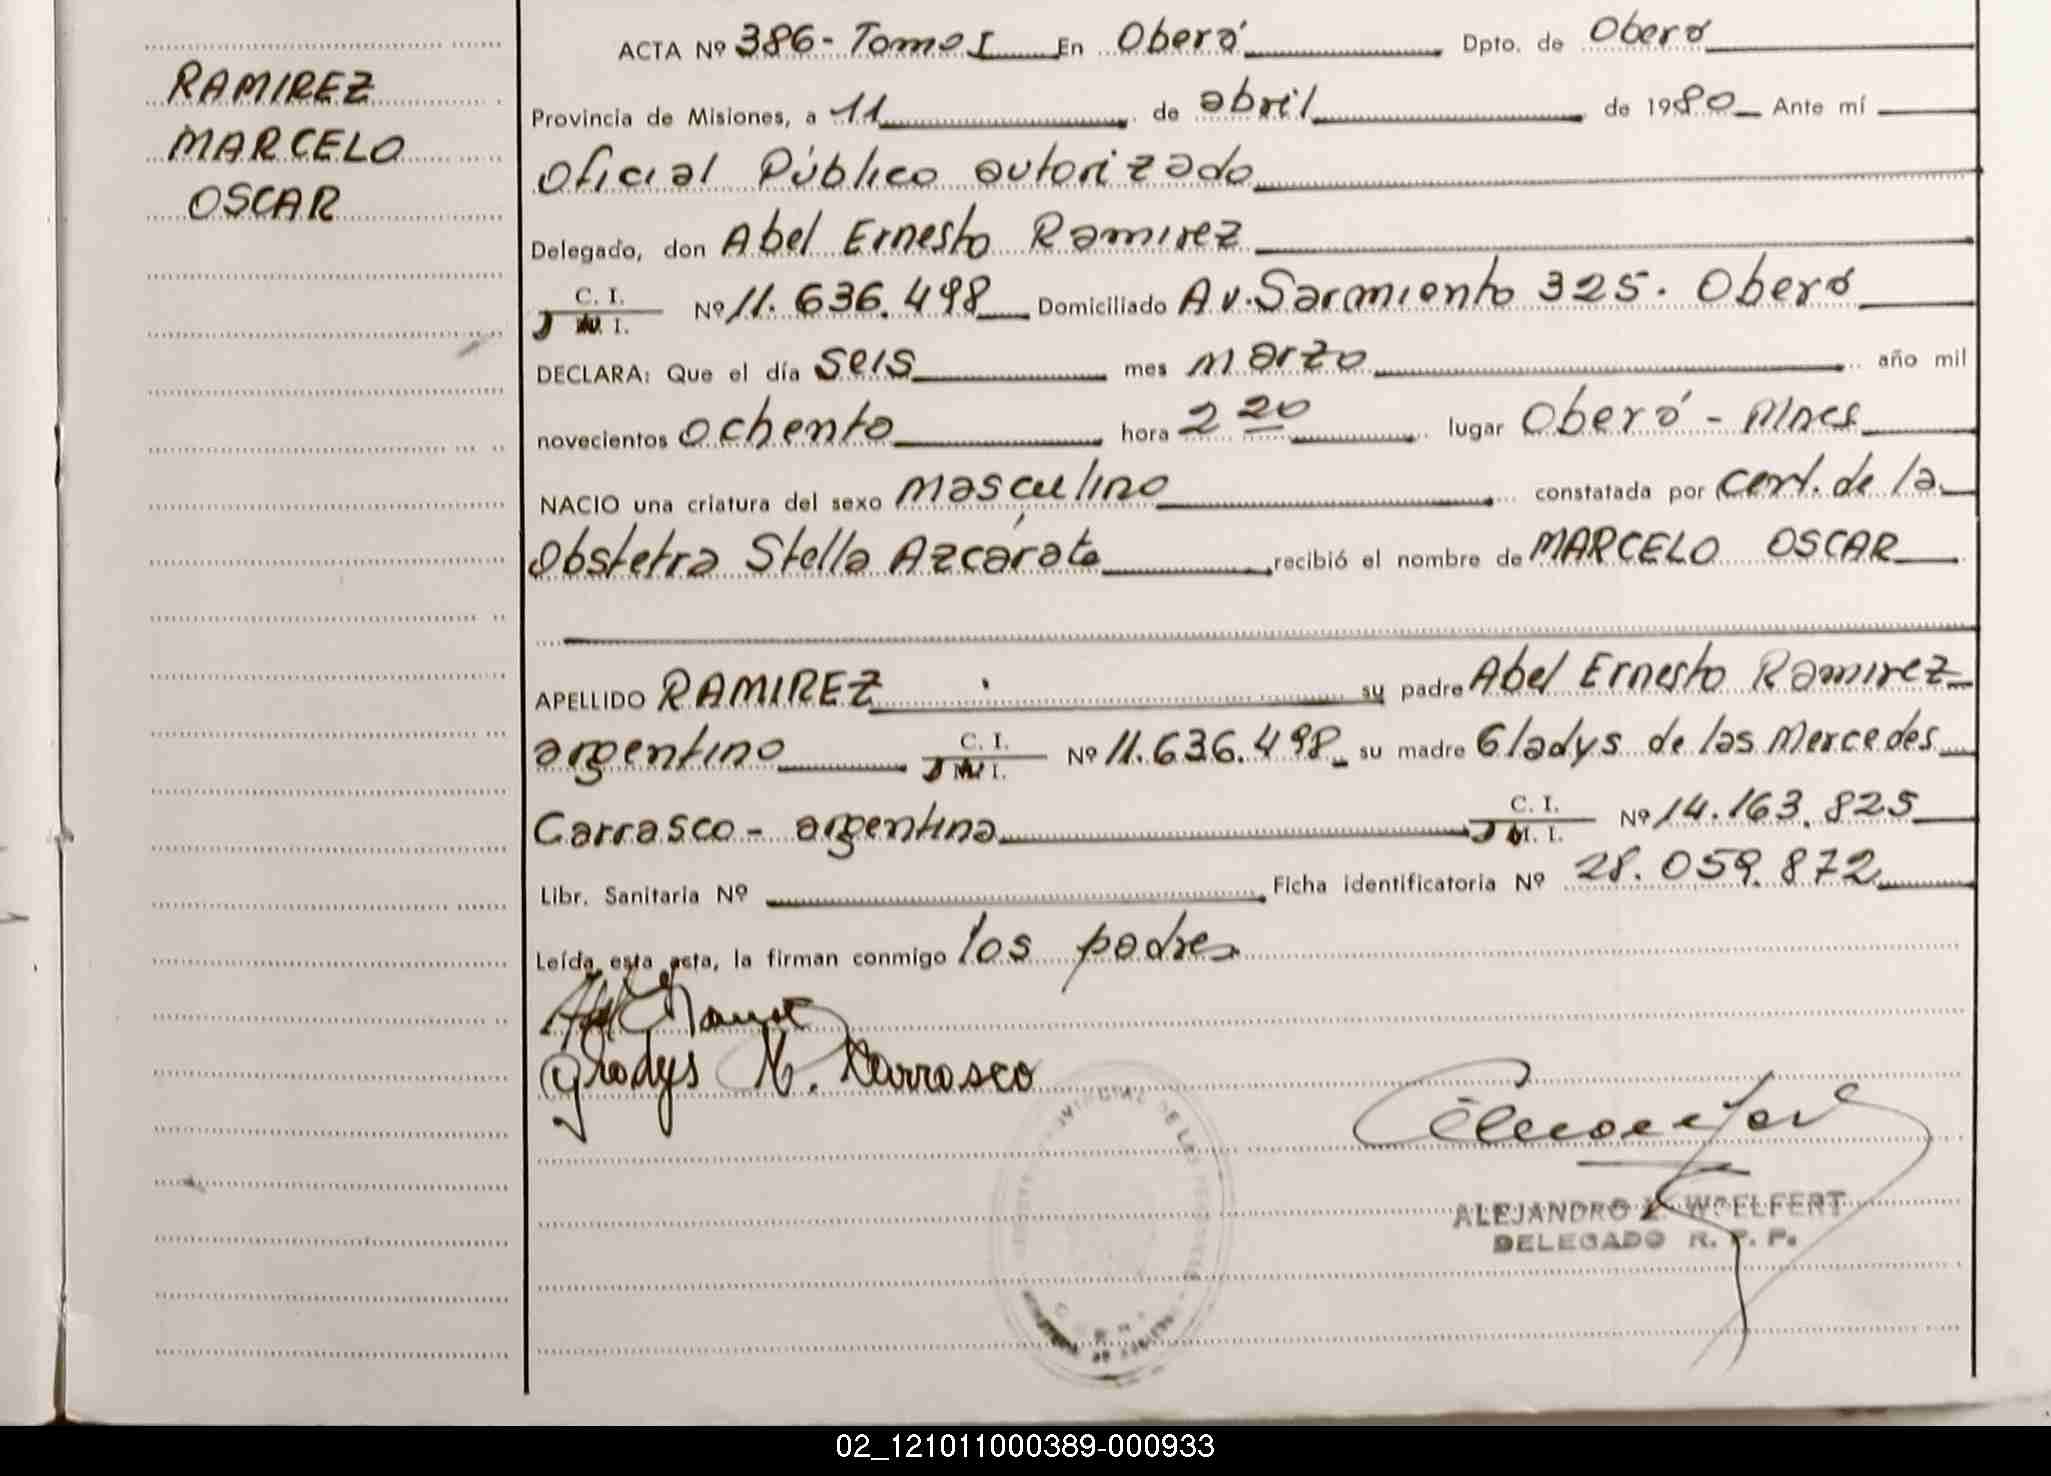 RAMIREZ
MARCELO
OSCAR
ACTA Nº 386 - Tomo I En Oberá Dpto. de Oberá
Provincia de Misiones, a 11 de abril de 1980 Ante mí
Oficial Público autorizado
Delegado, don Abel Ernesto Ramirez
C. I.
Nº 11.636.498 Domiciliado Av. Sarmiento 325. Oberá
I.
DECLARA: Que el día seis mes marzo año mil
novecientos ochenta hora 2 20 lugar Oberá - Mnes
NACIO una criatura del sexo masculino constatada por cert. de la
Obstetra Stella Azcárate recibió el nombre de MARCELO OSCAR
APELLIDO RAMIREZ su padre Abel Ernesto Ramirez
argentino C. I. Nº 11.636.498 su madre Gladys de las Mercedes
I.
Carrasco - argentina C. I. Nº 14.163.825
I.
Libr. Sanitaria Nº Ficha identificatoria Nº 28.059.872
Leída esta acta, la firman conmigo los padres
Gladys M. Carrasco
ALEJANDRO WOELFERT
DELEGADO R. P. P.
02_121011000389-000933